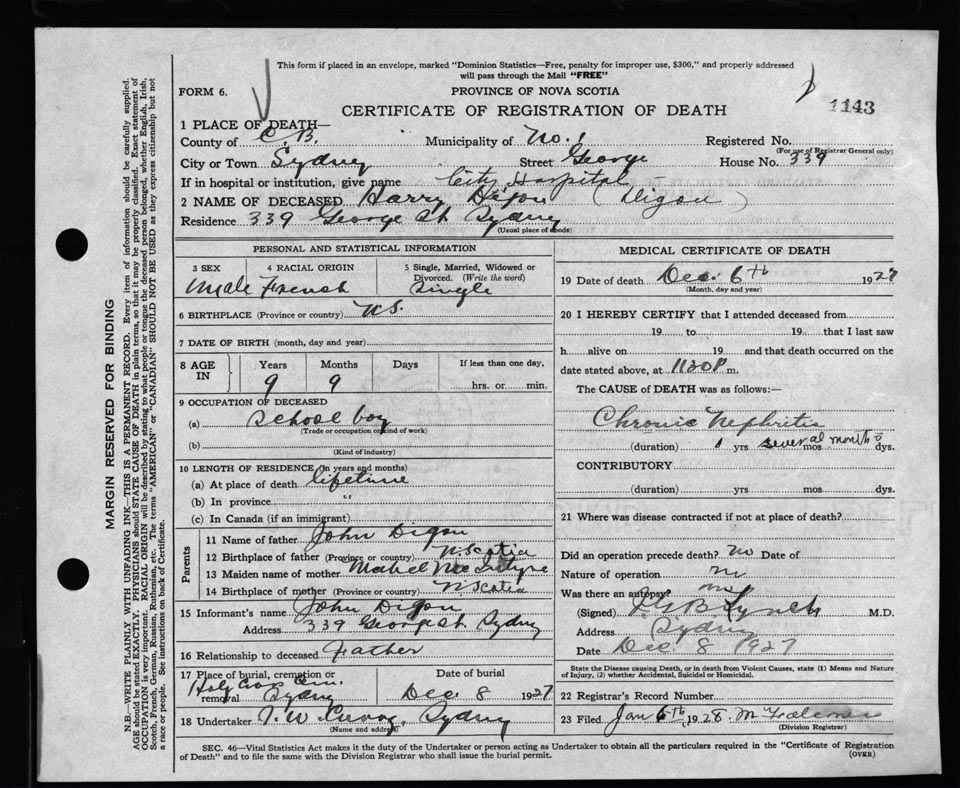 This form if placed in an envelope, marked "Dominion Statistics—Free, penalty for improper use, $300," and properly addressed
will pass through the Mail "FREE"
FORM 6.
PROVINCE OF NOVA SCOTIA
CERTIFICATE OF REGISTRATION OF DEATH
1143
1 PLACE OF DEATH—
County of C.B. Municipality of No. 1 Registered No.
(For use of Registrar General only)
City or Town Sydney Street George House No. 339
If in hospital or institution, give name City Hospital
2 NAME OF DECEASED Harry Digou (Digou)
Residence 339 George St. Sydney
(Usual place of abode)
PERSONAL AND STATISTICAL INFORMATION
3 SEX 4 RACIAL ORIGIN 5 Single, Married, Widowed or Divorced. (Write the word)
Male French Single
6 BIRTHPLACE (Province or country) N.S.
7 DATE OF BIRTH (month, day and year)
8 AGE IN Years Months Days If less than one day,
9 9 hrs. or min.
9 OCCUPATION OF DECEASED
(a) School boy
(Trade or occupation or kind of work)
(b)
(Kind of industry)
10 LENGTH OF RESIDENCE (in years and months)
(a) At place of death lifetime
(b) In province "
(c) In Canada (if an immigrant)
Parents
11 Name of father John Digou
12 Birthplace of father (Province or country) N. Scotia
13 Maiden name of mother Mabel MacIntyre
14 Birthplace of mother (Province or country) N. Scotia
15 Informant's name John Digou
Address 339 George St. Sydney
16 Relationship to deceased Father
17 Place of burial, cremation or removal Date of burial
Holy Cross Cem. Sydney Dec. 8 1927
18 Undertaker Sydney
(Name and address)
MEDICAL CERTIFICATE OF DEATH
19 Date of death Dec. 6th 1927
(Month, day and year)
20 I HEREBY CERTIFY that I attended deceased from
19 to 19 that I last saw
h alive on 19 and that death occurred on the
date stated above, at 1120P m.
The CAUSE of DEATH was as follows:—
Chronic Nephritis
(duration) yrs several months mos dys.
CONTRIBUTORY
(duration) yrs mos dys.
21 Where was disease contracted if not at place of death?
Did an operation precede death? no Date of
Nature of operation
Was there an autopsy? no
(Signed) Lynch M.D.
Address Sydney
Date Dec. 8 1927
State the Disease causing Death, or in death from Violent Causes, state (1) Means and Nature
of Injury, (2) whether Accidental, Suicidal or Homicidal.
22 Registrar's Record Number
23 Filed Jan 6th, 1928.
(Division Registrar)
SEC. 46—Vital Statistics Act makes it the duty of the Undertaker or person acting as Undertaker to obtain all the particulars required in the "Certificate of Registration
of Death" and to file the same with the Division Registrar who shall issue the burial permit. (OVER)
MARGIN RESERVED FOR BINDING
N.B.—WRITE PLAINLY WITH UNFADING INK—THIS IS A PERMANENT RECORD. Every item of information should be carefully supplied.
AGE should be stated EXACTLY. PHYSICIANS should STATE CAUSE OF DEATH in plain terms, so that it may be properly classified. Exact statement of
OCCUPATION is very important. RACIAL ORIGIN will be described by stating to what people or tongue the deceased person belonged, whether English, Irish,
Scotch, French, German, Russian, Ruthenian, etc. The terms "AMERICAN" or "CANADIAN" SHOULD NOT BE USED as they express citizenship but not
a race or people. See instructions on back of Certificate.